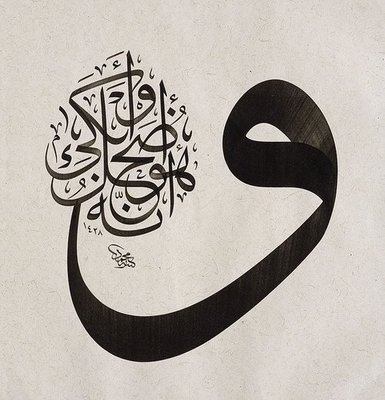 وأنه هو أضحك وأبكى
١٤٢٨